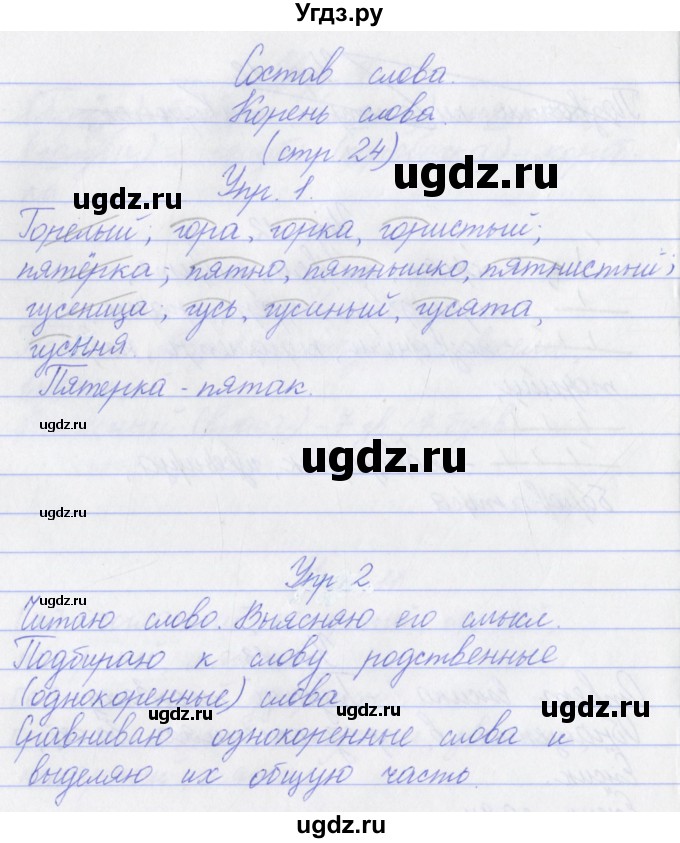 Угдз.ру
Состав слова.
Корень слова.
(стр. 24)
ugdz.ru
ugdz.ru
Упр. 1.
Горелый; гора, горка, гористый;
пятёрка; пятно, пятнышко, пятнистый;
гусеница; гусь, гусиный, гусята,
гусыня
Пятерка - пятак.
ugdz.ru
ugdz.ru
ugdz.ru
Упр 2
ugdz.ru
Читаю слово. Выясняю его смысл.
Подбираю к слову родственные
(однокоренные) слова
ugdz.ru
ugdz.ru
ugdz.ru
Сравниваю однокоренные слова и
выделяю их общую часть.
ugdz.ru